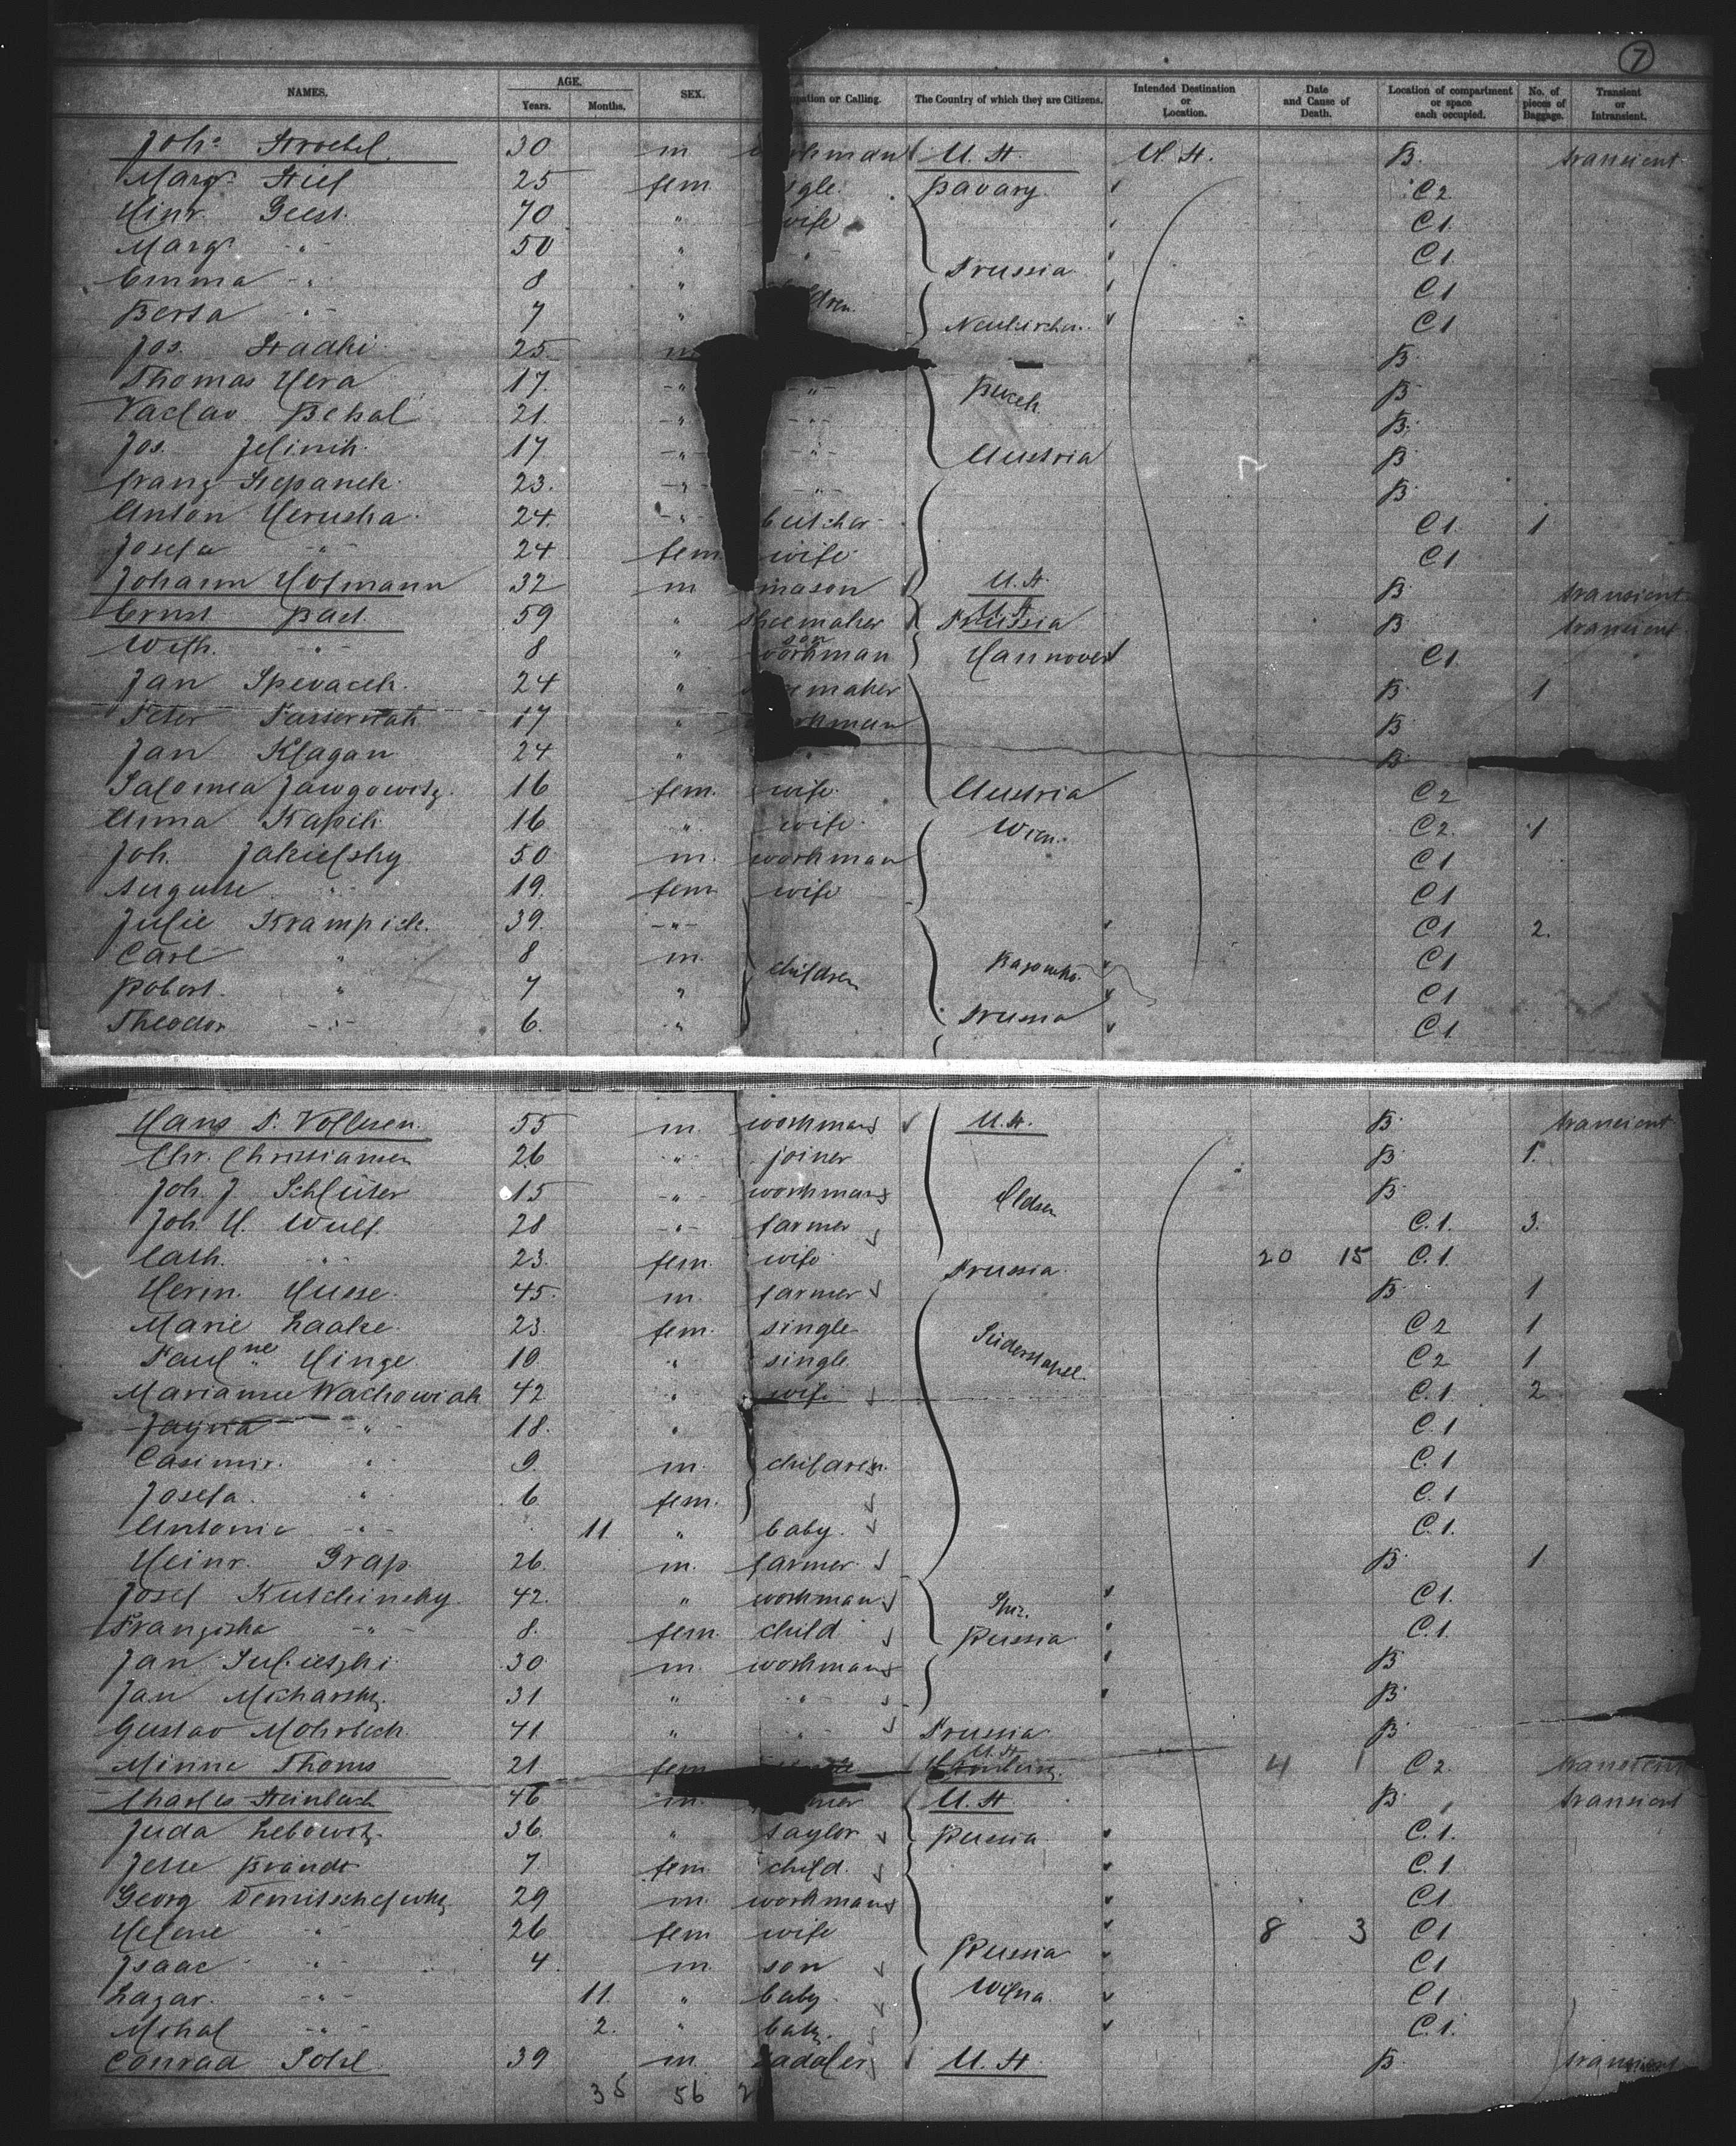 7
NAMES. AGE. Years. Months. SEX. pation or Calling. The Country of which they are Citizens. Intended Destination or Location. Date and Cause of Death. Location of compartment or space each occupied. No. of pieces of Baggage. Transient or Intransient.
Joh. Stroebel. 30 m. U. St. U. St. B. transient
Marg. Stief 25 fem. gle. Bavary. C2
Hinr. Geest. 70 " wife C1
Marg. -"- 50 " C1
Prussia
Emma -"- 8 " C1
Berta -"- 7 " C1
Jos. 25 m B.
Thomas Hera 17. -"- -"- B.
Vaclav Behal 21. -"- -"- B.
Jos. Jelinik. 17 -"- -"- B
Austria
Franz Stepanek. 23. -"- -"- B.
Anton Heruska. 24. -"- butcher C1. 1
Josefa -"- 24 fem wife C1
Johann Hofmann 32 m mason U. St. B. transient
Ernst 59 " shoemaker U. St. Prussia B. transient
Wilh. -"- 8 " son workman Hannover C1.
Jan Spevacek. 24 " emaker B. 1
Peter 17 " rkman B.
Jan Klagan 24 " " B.
Salomea 16 fem. wife. Austria C2
Anna Kapik 16 " wife. Wien. C2. 1
Joh. 50 m. workman C1
Auguste -"- 19. fem wife C1
Julie Krampich. 39. -"- C1 2.
Carl " 8 m. children C1
Robert. " 7 " C1
Theodor -"- 6. " Prussia C1
Hans P. Vollesen. 55 m. workman U. St. B. transient
Chr. Christiansen 26 " joiner B. 1.
Joh. J. Schlüter 15 -"- workman B.
Joh. H. Wulf. 28 -"- farmer C.1. 3.
Cath. -"- 23. fem. wife Prussia 20 15 C.1.
Herm. Husse. 45. m. farmer B. 1
Marie Laake. 23. fem. single C2 1
Paul"ne" Hinze 19 " single Süderstapel. C2 1
Marianne Wachowiak 42 " wife C.1. 2
-"- 18. " C.1
Casimir. " 9 m. children. C.1
Josefa. " 6 fem. C.1
Antonie -"- 11 " baby. C.1.
Heinr. Grap. 26. m. farmer. B. 1
Josef Kutschinsky. 42. " workman. C1.
Franziska -"- 8. fem. child Russia C.1.
Jan 30 m. workman B
Jan Micharsky. 31 " " B.
Gustav 41 " " Prussia B.
Minna Thoms 21 fem U. St. 4 1 C2. transient
Charles Steinbach 46 m. U. St. B. transient
Juda Lebowitz. 36. " taylor Russia C.1.
Jette Brandt 7. fem child. C.1
Georg 29 m. workman C1
Helene " 26 fem wife 8 3 C1
Isaac -"- 4. m. son Russia C1
Lazar. -"- 11. " baby. Wilna. C1
Mihal -"- 2. " baby. C.1.
Conrad 39 m. saddler U. St. B. transient
35 56 2